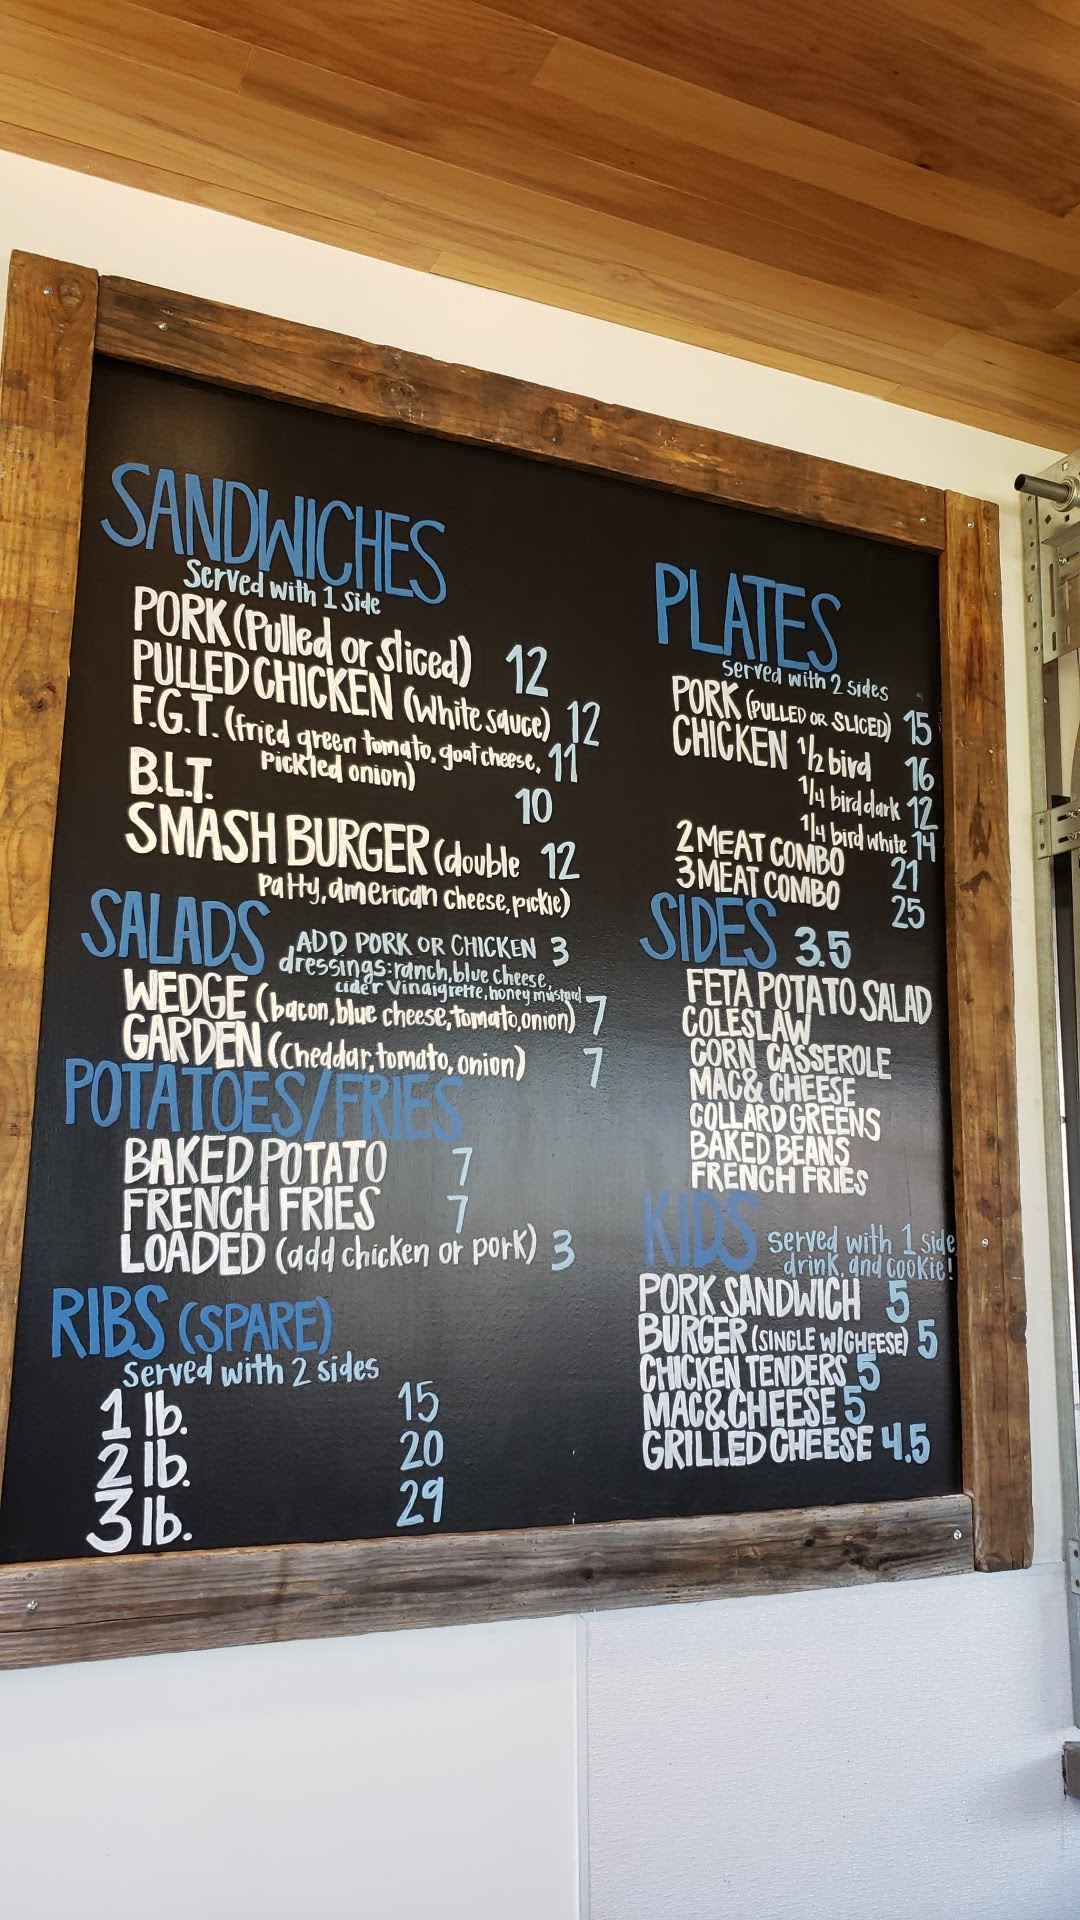 SANDWICHES
Served with 1 side
PORK (Pulled or sliced) 12
PULLED CHICKEN (white sauce) 12
F.G.T. (fried green tomato, goat cheese, 11
pickled onion)
B.L.T. 10
SMASH BURGER (double 12
patty, american cheese, pickle)
SALADS ADD PORK OR CHICKEN 3
dressings: ranch, blue cheese,
cider vinaigrette, honey mustard
WEDGE (bacon, blue cheese, tomato, onion) 7
GARDEN (cheddar, tomato, onion) 7
POTATOES/FRIES
BAKED POTATO 7
FRENCH FRIES 7
LOADED (add chicken or pork) 3
RIBS (SPARE)
Served with 2 sides
1 lb. 15
2 lb. 20
3 lb. 29
PLATES
served with 2 sides
PORK (PULLED OR SLICED) 15
CHICKEN 1/2 bird 16
1/4 bird dark 12
1/4 bird white 14
2 MEAT COMBO 21
3 MEAT COMBO 25
SIDES 3.5
FETA POTATO SALAD
COLESLAW
CORN CASSEROLE
MAC & CHEESE
COLLARD GREENS
BAKED BEANS
FRENCH FRIES
KIDS served with 1 side
drink, and cookie!
PORK SANDWICH 5
BURGER (SINGLE W/CHEESE) 5
CHICKEN TENDERS 5
MAC & CHEESE 5
GRILLED CHEESE 4.5